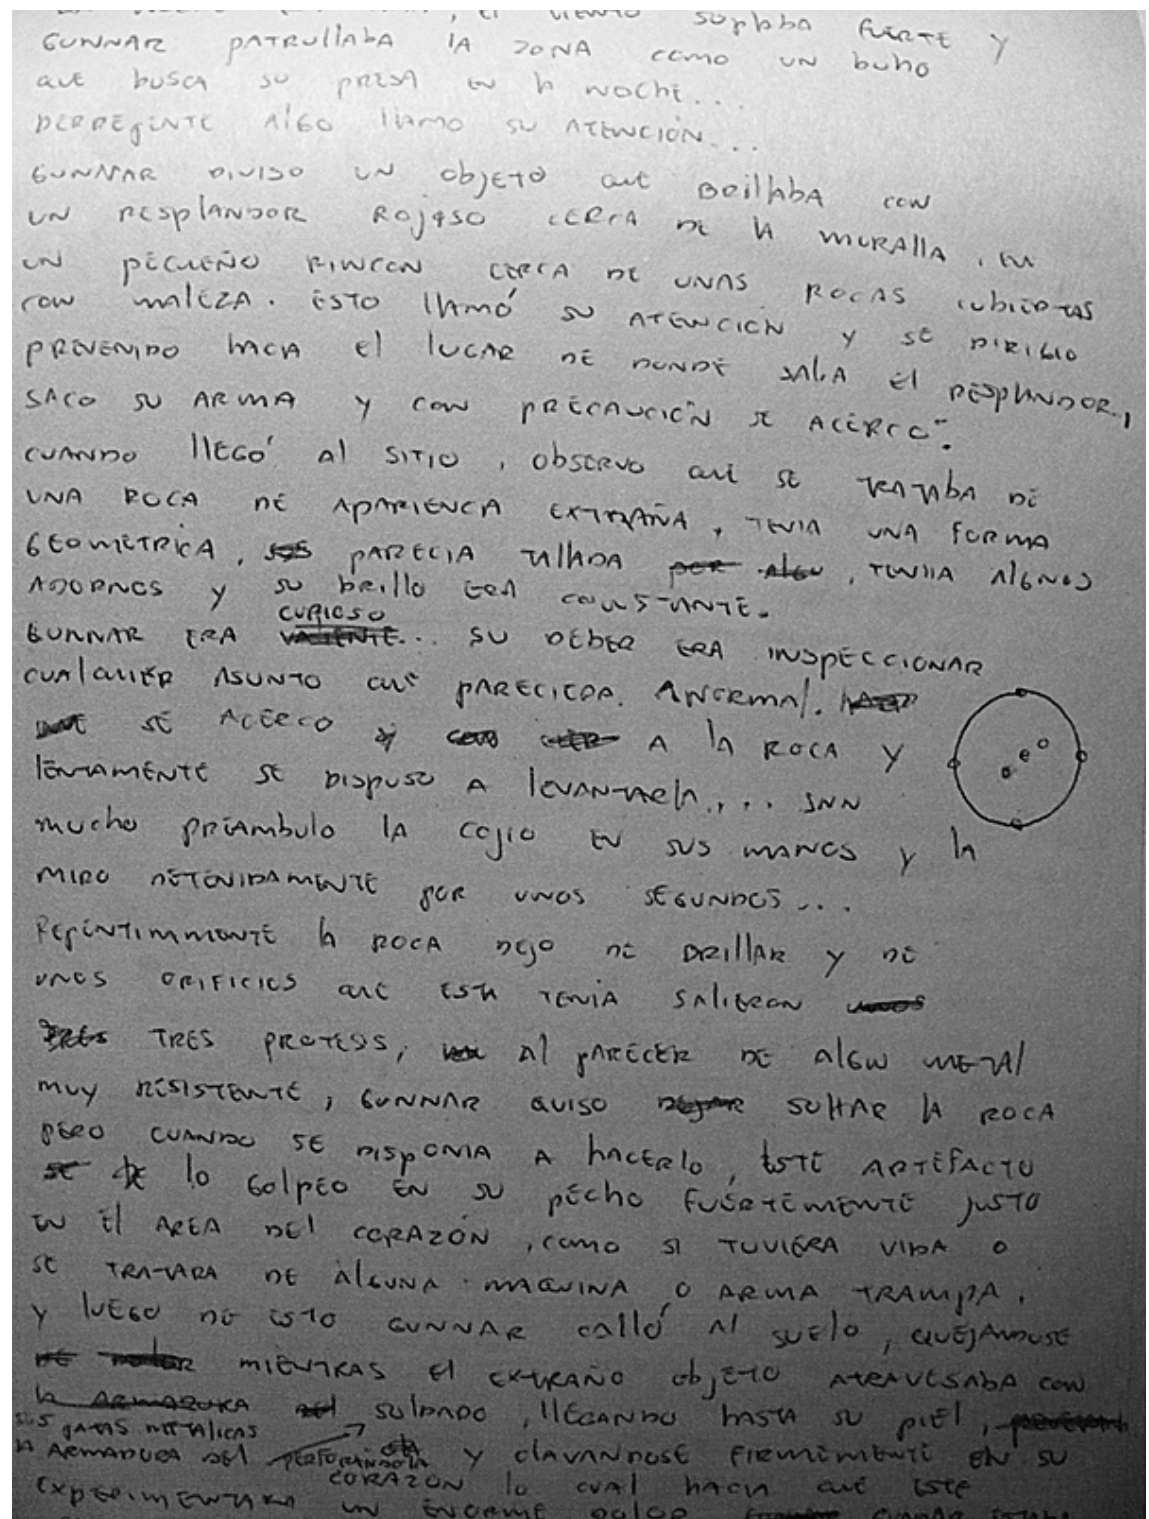 , el viento soplaba fuerte y
GUNNAR patrullaba la zona como un buho
que busca su presa en la noche...
Derrepente algo llamo su atención...
Gunnar diviso un objeto que brillaba con
un resplandor rojoso cerca de la muralla, en
un pequeño rincon cerca de unas rocas cubiertas
con maleza. Esto llamó su atención y se dirigio
prevenido hacia el lugar de donde salia el resplandor,
saco su arma y con precaución se acerco.
cuando llegó al sitio, observo que se trataba de
una roca de apariencia extraña, tenia una forma
geometrica, parecia tallada por algo, tenia algnos
adornos y su brillo era constante.
curioso
Gunnar era valiente... su deber era inspeccionar
cualquier asunto que pareciera anormal.
se acerco a la roca y
lentamente se dispuso a levantarla.... sin
mucho priambulo la cojio en sus manos y la
miro detenidamente por unos segundos...
Repentinmente la roca dejo de brillar y de
unos orificios que esta tenia salieron unos
tres tres protesis, al parecer de algun metal
muy resistente, Gunnar quiso dejar soltar la roca
pero cuando se disponia a hacerlo, este artefacto
se lo golpeo en su pecho fuertemente justo
en el area del corazón, como si tuviera vida o
se tratara de alguna maquina o arma trampa.
y luego de esto Gunnar calló al suelo, quejandose
de dolor mientras el extraño objeto atravesaba con
la armadura del soldado, llegando hasta su piel,
sus patas metalicas
la armadura del perforandola y clavandose firmemente en su
corazon lo cual hacia que este
experimentara un enorme dolor